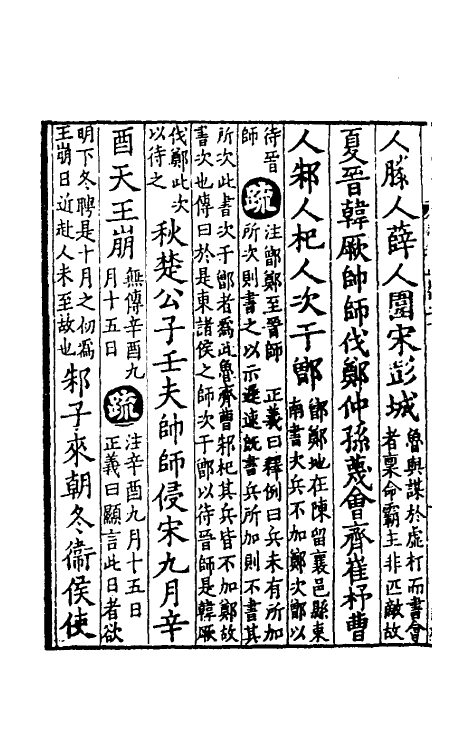 人滕人薛人圍宋彭城魯與謀於虛朾而書會者稟命霸主非匹敵故
夏晉韓厥帥師伐鄭仲孫蔑會齊崔杼曹
人邾人杞人次于鄫鄫鄭地在陳留襄邑縣東南書次兵不加鄭次鄫以
待晉師疏注鄫鄭至晉師 正義曰釋例曰兵未有所加所次則書之以示遲速旣書兵所加則不書其
所次此書次于鄫者爲此魯齊曹邾杞其兵皆不加鄭故書次也傳曰於是東諸侯之師次于鄫以待晉師是韓厥
伐鄭此次以待之秋楚公子壬夫帥師侵宋九月辛
酉天王崩無傳辛酉九月十五日疏注辛酉九月十五日 正義曰顯言此日者欲
明下冬聘是十月之初爲王崩日近赴人未至故也邾子來朝冬衞侯使